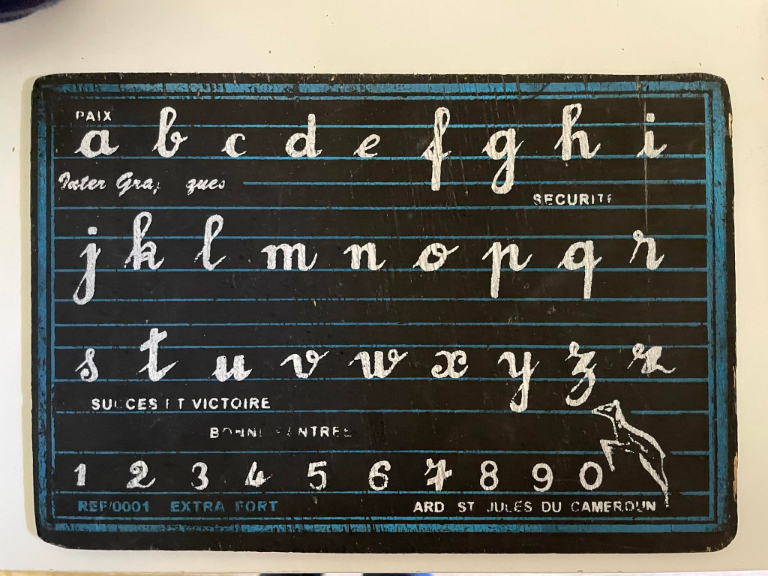 PAIX
a b c d e f g h i
Inter
SECURITE
j k l m n o p q r
s t u v w x y z
SUCCES ET VICTOIRE
BONNE RENTREE
1 2 3 4 5 6 7 8 9 0
REF/0001 EXTRA FORT
ARD ST JULES DU CAMEROUN